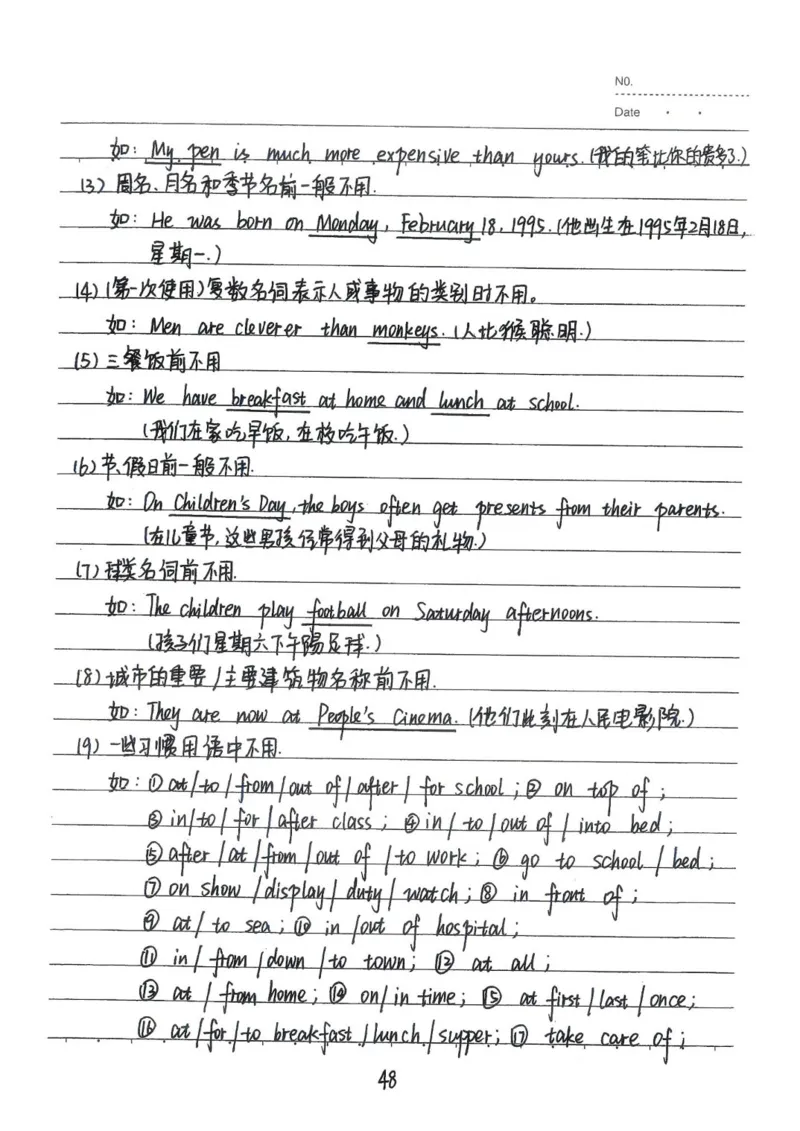 N0.
Date
如: My pen is much more expensive than yours.(我的笔比你的贵多了.)
(3) 周名、月名和季节名前一般不用.
如: He was born on Monday, February 18, 1995.(他出生在1995年2月18日,
星期一.)
(4)(第一次使用)复数名词表示人或事物的类别时不用。
如: Men are cleverer than monkeys.(人比猴聪明.)
(5)三餐饭前不用
如: We have breakfast at home and lunch at school.
(我们在家吃早饭,在校吃午饭.)
(6)节、假日前一般不用.
如: On Children's Day, the boys often get presents from their parents.
(在儿童节,这些男孩经常得到父母的礼物.)
(7)球类名词前不用.
如: The children play football on Saturday afternoons.
(孩子们星期六下午踢足球.)
(8)城市的重要/主要建筑物名称前不用.
如: They are now at People's Cinema.(他们此刻在人民电影院.)
(9)一些习惯用语中不用.
如: ① at/to/from/out of/after/for school; ② on top of;
③ in/to/for/after class; ④ in/to/out of/into bed;
⑤ after/at/from/out of/to work; ⑥ go to school/bed;
⑦ on show/display/duty/watch; ⑧ in front of;
⑨ at/to sea; ⑩ in/out of hospital;
⑪ in/from/down/to town; ⑫ at all;
⑬ at/from home; ⑭ on/in time; ⑮ at first/last/once;
⑯ at/for/to breakfast/lunch/supper; ⑰ take care of;
48